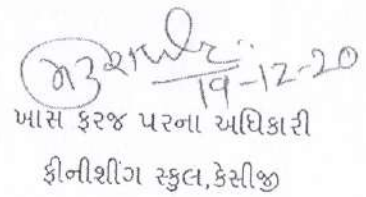 19-12-20
ખાસ ફરજ પરના અધિકારી
ફીનીશીંગ સ્કુલ,કેસીજી